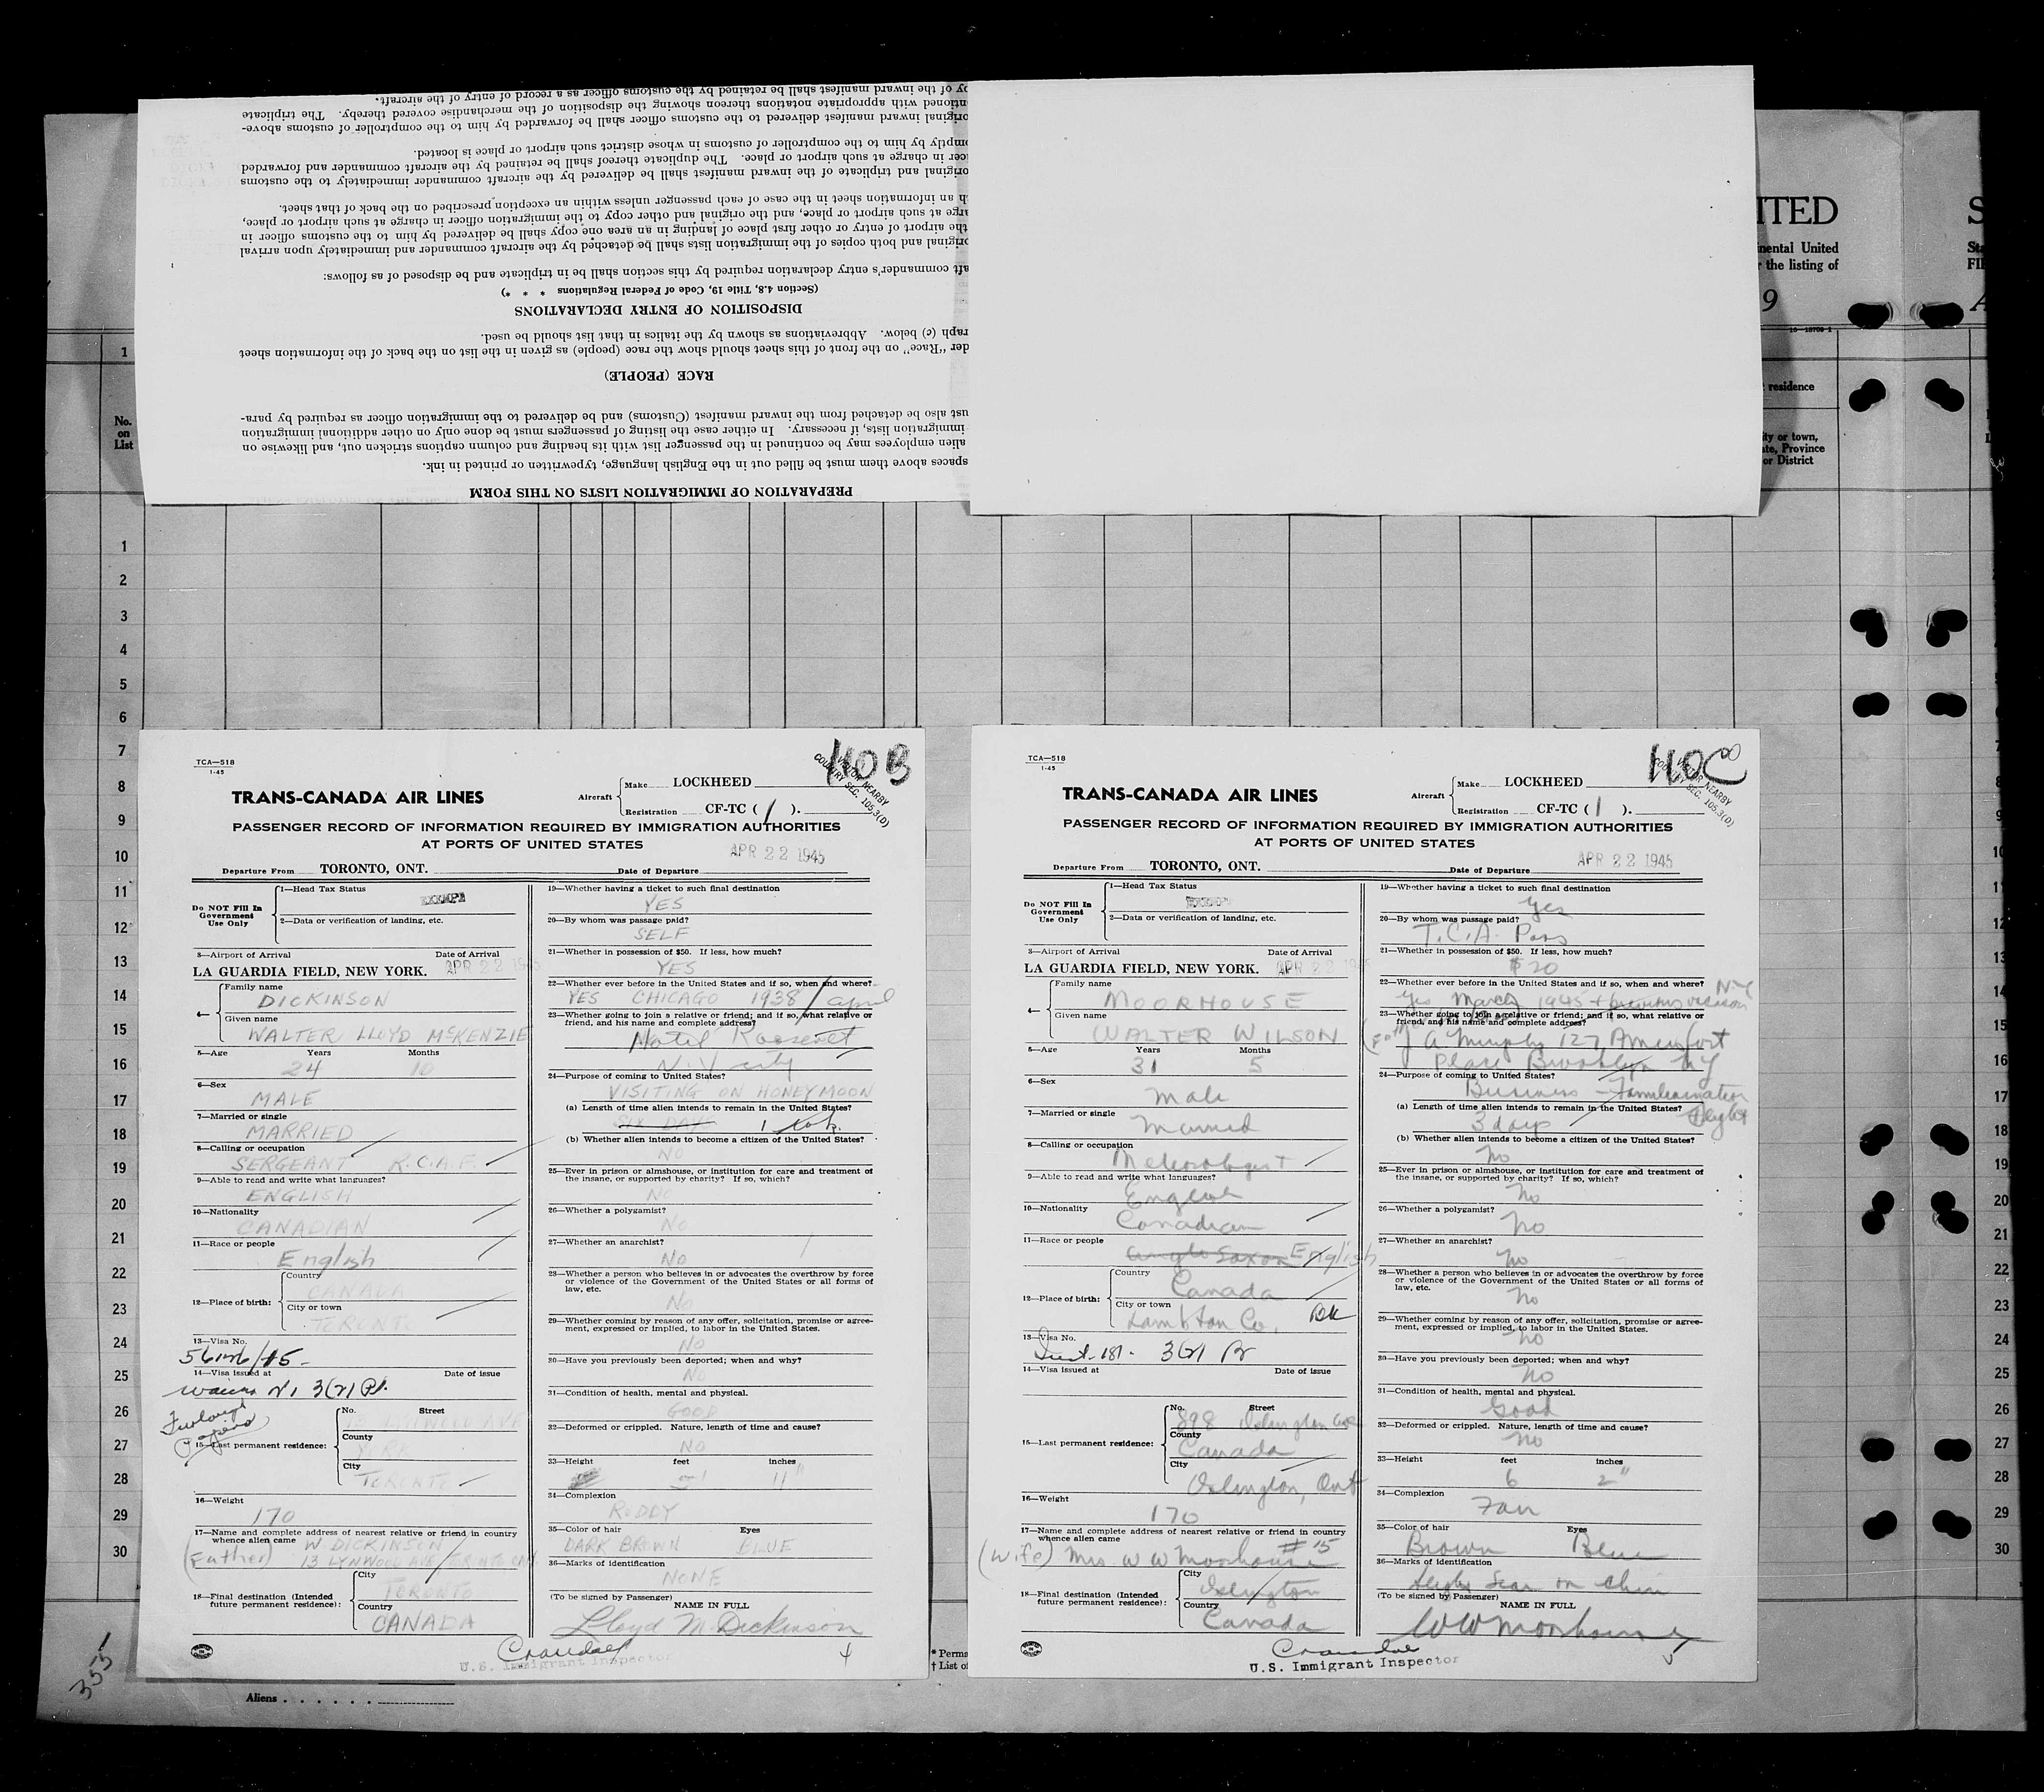 by of the inward manifest shall be retained by the customs officer as a record of entry of the aircraft.
tioned with appropriate notations thereon showing the disposition of the merchandise covered thereby. The triplicate
original inward manifest delivered to the customs officer shall be forwarded by him to the comptroller of customs above-
mptly by him to the comptroller of customs in whose district such airport or place is located.
icer in charge at such airport or place. The duplicate thereof shall be retained by the aircraft commander and forwarded
original and triplicate of the inward manifest shall be delivered by the aircraft commander immediately to the customs
h an information sheet in the case of each passenger unless within an exception prescribed on the back of that sheet.
arge at such airport or place, and the original and other copy to the immigration officer in charge at such airport or place,
the airport of entry or other first place of landing in an area one copy shall be delivered by him to the customs officer in
original and both copies of the immigration lists shall be detached by the aircraft commander and immediately upon arrival
aft commander's entry declaration required by this section shall be in triplicate and be disposed of as follows:
(Section 4.8, Title 19, Code of Federal Regulations * * *)
DISPOSITION OF ENTRY DECLARATIONS
raph (c) below. Abbreviations as shown by the italics in that list should be used.
der "Race" on the front of this sheet should show the race (people) as given in the list on the back of the information sheet
RACE (PEOPLE)
ust also be detached from the inward manifest (Customs) and be delivered to the immigration officer as required by para-
immigration lists, if necessary. In either case the listing of passengers must be done only on other additional immigration
alien employees may be continued in the passenger list with its heading and column captions stricken out, and likewise on
spaces above them must be filled out in the English language, typewritten or printed in ink.
PREPARATION OF IMMIGRATION LISTS ON THIS FORM
ITED
inental United
r the listing of
9
residence
ity or town,
ate, Province
or District
No.
on
List
1
1
2
3
4
5
6
7
8
9
10
11
12
13
14
15
16
17
18
19
20
21
22
23
24
25
26
27
28
29
30
TCA—518
1-45
110B
COUNTRY SEC. 105.3(D)
TRANS-CANADA AIR LINES
Aircraft
Make LOCKHEED
Registration CF-TC ( 1 ).
PASSENGER RECORD OF INFORMATION REQUIRED BY IMMIGRATION AUTHORITIES
AT PORTS OF UNITED STATES
APR 22 1945
Departure From TORONTO, ONT. Date of Departure
Do NOT Fill In Government Use Only
1—Head Tax Status
EXEMPT
2—Data or verification of landing, etc.
3—Airport of Arrival Date of Arrival
LA GUARDIA FIELD, NEW YORK. APR 22 1945
4—
Family name
DICKINSON
Given name
WALTER LLOYD McKENZIE
5—Age Years Months
24 10
6—Sex
MALE
7—Married or single
MARRIED
8—Calling or occupation
SERGEANT R.C.A.F.
9—Able to read and write what languages?
ENGLISH
10—Nationality
CANADIAN
11—Race or people
English
12—Place of birth:
Country
CANADA
City or town
TORONTO
13—Visa No.
14—Visa issued at Date of issue
3(2)
15—Last permanent residence:
No. Street
13 LYNWOOD AVE
County
YORK
City
TORONTO
16—Weight
170
17—Name and complete address of nearest relative or friend in country
whence alien came W. DICKINSON
(Father) 13 LYNWOOD AVE TORONTO CAN.
18—Final destination (Intended
future permanent residence):
City
TORONTO
Country
CANADA
19—Whether having a ticket to such final destination
YES
20—By whom was passage paid?
SELF
21—Whether in possession of $50. If less, how much?
YES
22—Whether ever before in the United States and if so, when and where?
YES CHICAGO 1938 / April
23—Whether going to join a relative or friend; and if so, what relative or
friend, and his name and complete address?
Hotel Roosevelt
N.Y. city
24—Purpose of coming to United States?
VISITING ON HONEYMOON
(a) Length of time alien intends to remain in the United States?
SIX DAY 1 wk.
(b) Whether alien intends to become a citizen of the United States?
NO
25—Ever in prison or almshouse, or institution for care and treatment of
the insane, or supported by charity? If so, which?
NO
26—Whether a polygamist?
NO
27—Whether an anarchist?
NO
28—Whether a person who believes in or advocates the overthrow by force
or violence of the Government of the United States or all forms of
law, etc.
NO
29—Whether coming by reason of any offer, solicitation, promise or agree-
ment, expressed or implied, to labor in the United States.
NO
30—Have you previously been deported; when and why?
NO
31—Condition of health, mental and physical.
GOOD
32—Deformed or crippled. Nature, length of time and cause?
NO
33—Height feet inches
5' 11"
34—Complexion
RUDDY
35—Color of hair Eyes
DARK BROWN BLUE
36—Marks of identification
NONE
(To be signed by Passenger)
NAME IN FULL
Lloyd M. Dickinson
U.S. Immigrant Inspector
TCA—518
1-45
110C
TRANS-CANADA AIR LINES
Aircraft
Make LOCKHEED
Registration CF-TC ( 1 ).
PASSENGER RECORD OF INFORMATION REQUIRED BY IMMIGRATION AUTHORITIES
AT PORTS OF UNITED STATES
APR 22 1945
Departure From TORONTO, ONT. Date of Departure
Do NOT Fill In Government Use Only
1—Head Tax Status
EXEMPT
2—Data or verification of landing, etc.
3—Airport of Arrival Date of Arrival
LA GUARDIA FIELD, NEW YORK. APR 22 1945
4—
Family name
MOORHOUSE
Given name
WALTER WILSON
5—Age Years Months
31 5
6—Sex
Male
7—Married or single
Married
8—Calling or occupation
Meteorologist
9—Able to read and write what languages?
English
10—Nationality
Canadian
11—Race or people
Anglo Saxon English
12—Place of birth:
Country
Canada
City or town
Lambton Co.
13—Visa No.
3(2)
14—Visa issued at Date of issue
15—Last permanent residence:
No. Street
898 Islington Ave
County
Canada
City
Islington, Ont
16—Weight
170
17—Name and complete address of nearest relative or friend in country
whence alien came #15
(Wife) Mrs W W Moorhouse
18—Final destination (Intended
future permanent residence):
City
Islington
Country
Canada
19—Whether having a ticket to such final destination
Yes
20—By whom was passage paid?
T.C.A. Pass
21—Whether in possession of $50. If less, how much?
$20
22—Whether ever before in the United States and if so, when and where? N-Y
Yes March 1945 + previous
23—Whether going to join a relative or friend; and if so, what relative or
friend, and his name and complete address?
A Murphy 127 Amersfort
Place Brooklyn NY
24—Purpose of coming to United States?
Business — Familiarization
Flight
(a) Length of time alien intends to remain in the United States?
3 days
(b) Whether alien intends to become a citizen of the United States?
No
25—Ever in prison or almshouse, or institution for care and treatment of
the insane, or supported by charity? If so, which?
No
26—Whether a polygamist?
No
27—Whether an anarchist?
No
28—Whether a person who believes in or advocates the overthrow by force
or violence of the Government of the United States or all forms of
law, etc.
No
29—Whether coming by reason of any offer, solicitation, promise or agree-
ment, expressed or implied, to labor in the United States.
No
30—Have you previously been deported; when and why?
No
31—Condition of health, mental and physical.
Good
32—Deformed or crippled. Nature, length of time and cause?
No
33—Height feet inches
6 2"
34—Complexion
Fair
35—Color of hair Eyes
Brown Blue
36—Marks of identification
Scar on chin
(To be signed by Passenger)
NAME IN FULL
W W Moorhouse
U.S. Immigrant Inspector
355
* Perma
† List of
Aliens